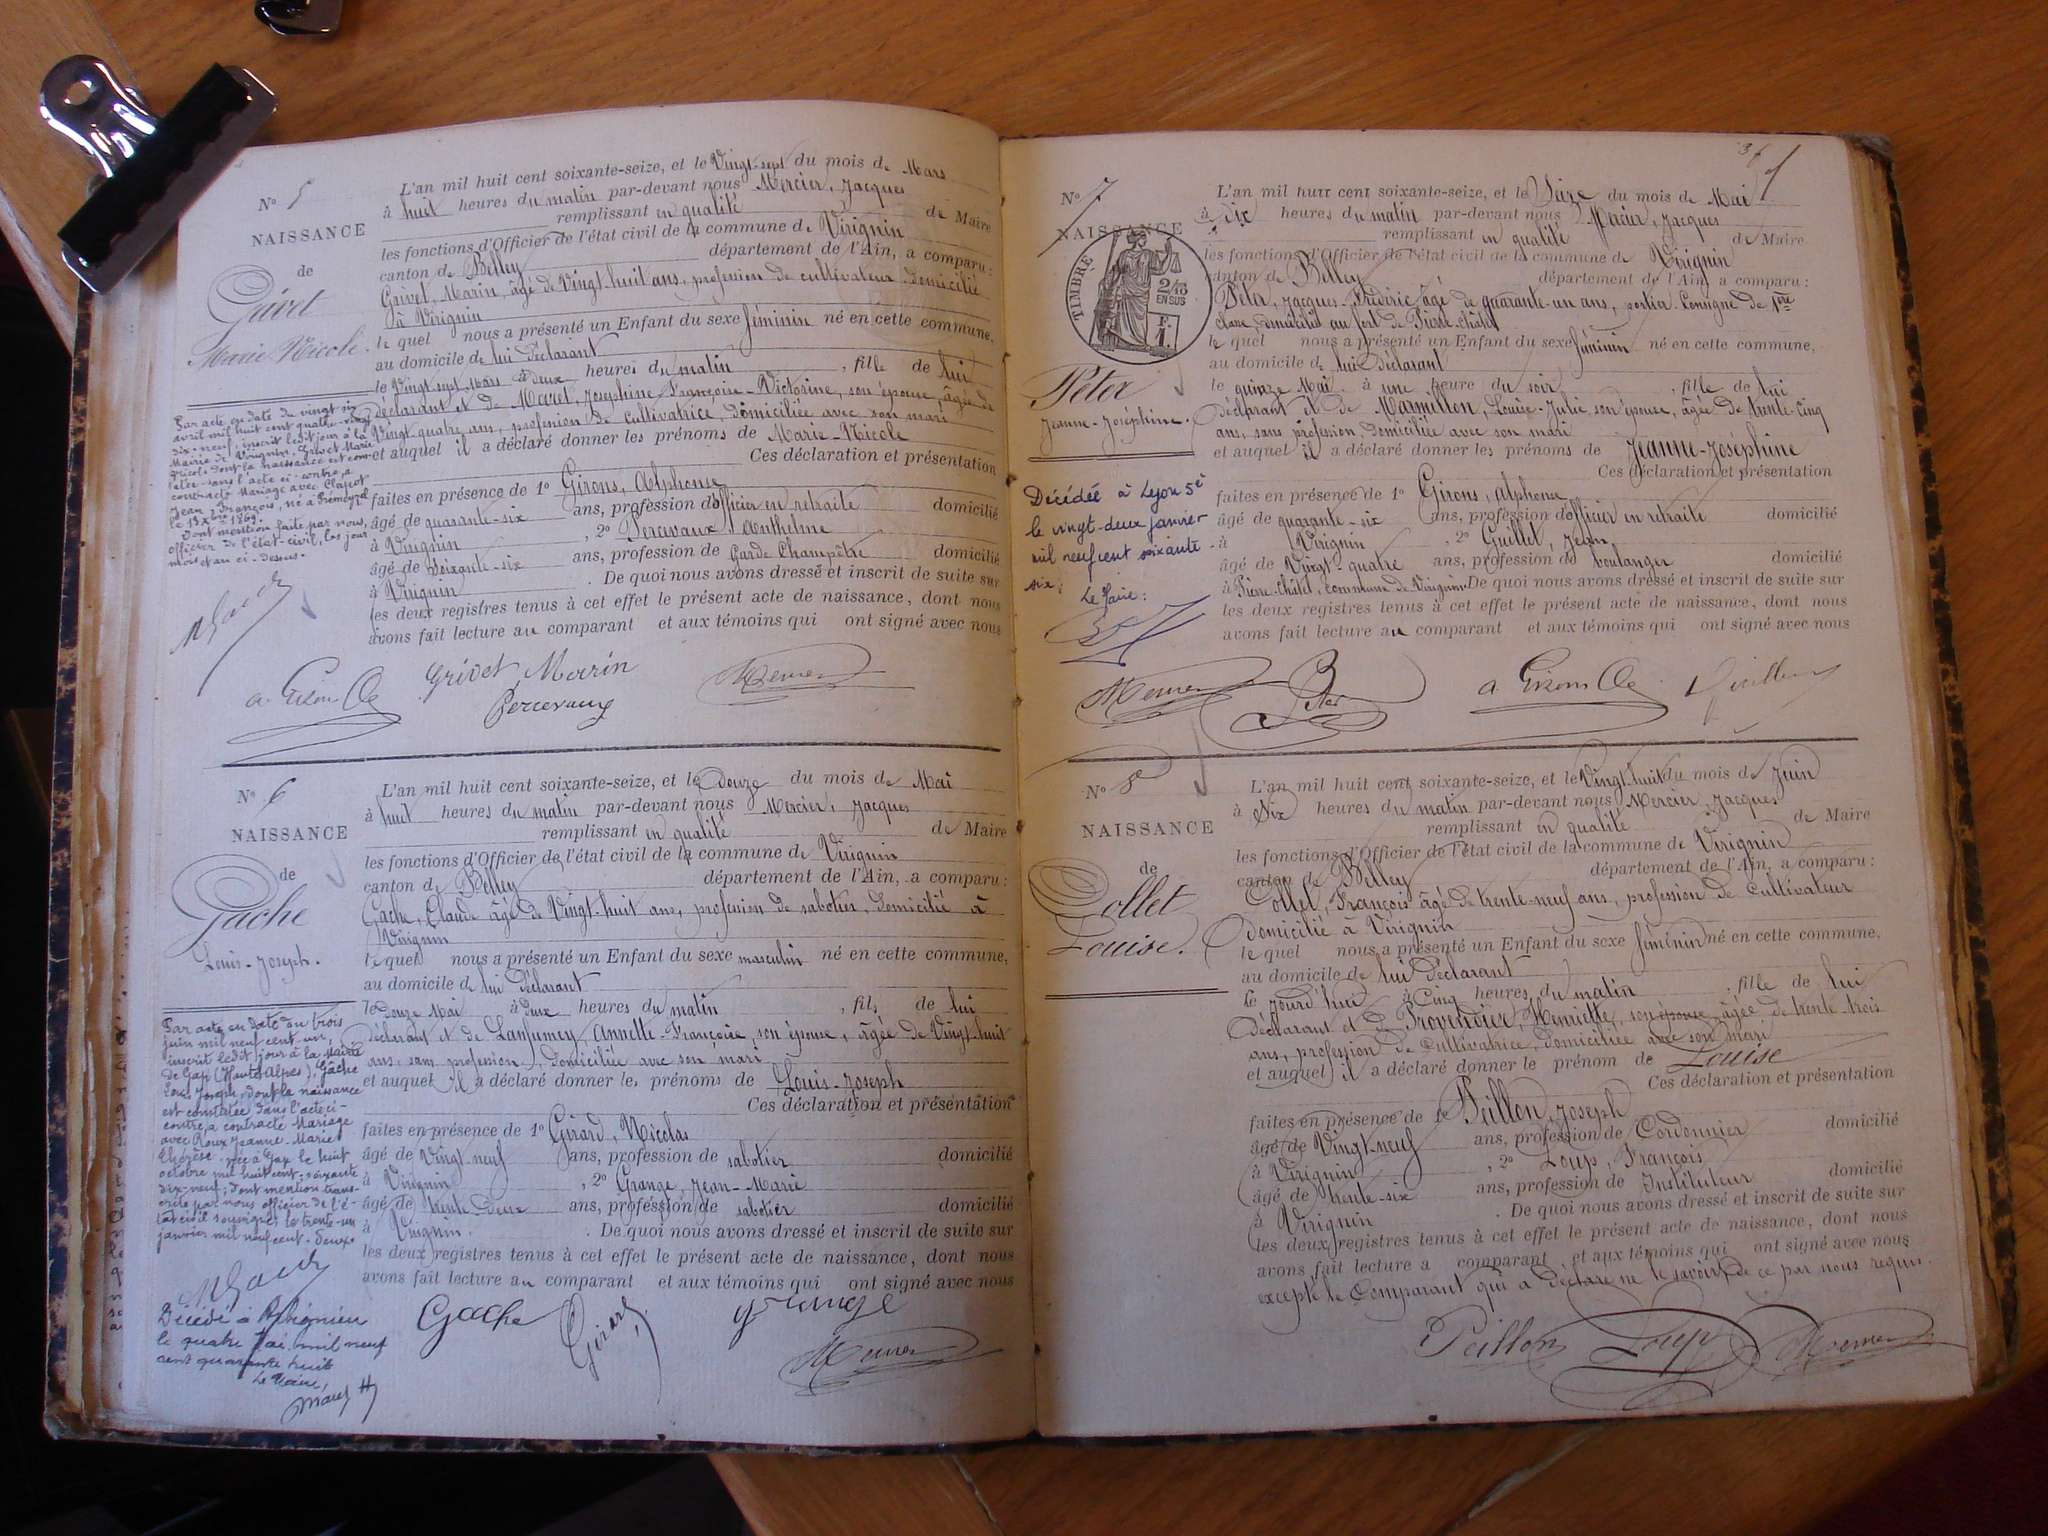 N° 5
NAISSANCE
de
Grivet
Marie Nicole.
Par acte en date du vingt six
avril mil huit cent quatre-vingt
dix-neuf, inscrit ledit jour à la
Mairie de Virignin, Grivet Marie
Nicole dont la naissance est cons-
tatée dans l'acte ci-contre, a
contracté Mariage avec Clapot
Jean François, né à Prémeyzel
le 13 Xbre 1869.
Dont mention faite par nous,
officier de l'état-civil, les jour
mois et an ci-dessus.
L'an mil huit cent soixante-seize, et le Vingt-sept du mois de Mars
à huit heures du matin par-devant nous Mercier, Jacques
remplissant en qualité de Maire
les fonctions d'Officier de l'état civil de la commune de Virignin
canton de Belley département de l'Ain, a comparu :
Grivet, Marin, âgé de Vingt-huit ans, profession de cultivateur domicilié
à Virignin
le quel nous a présenté un Enfant du sexe féminin né en cette commune,
au domicile de lui déclarant
le Vingt sept Mars à deux heures du matin , fille de lui
déclarant et de Moret, Josephine Françoise-Victorine, son épouse, âgée de
Vingt quatre ans, profession de Cultivatrice, domiciliée avec son mari
et auquel il a déclaré donner les prénoms de Marie-Nicole
Ces déclaration et présentation
faites en présence de 1° Girons, Alphonse
âgé de quarante-six ans, profession d'officier en retraite domicilié
à Virignin , 2° Percevaux Anthelme
âgé de Soixante-six ans, profession de Garde Champêtre domicilié
à Virignin . De quoi nous avons dressé et inscrit de suite sur
les deux registres tenus à cet effet le présent acte de naissance, dont nous
avons fait lecture au comparant et aux témoins qui ont signé avec nous
a. Girons
Grivet Marin
Percevaux
Mercier
N° 6
NAISSANCE
de
Gache
Louis-Joseph.
Par acte en date du trois
juin mil neuf cent un,
inscrit ledit jour à la Mairie
de Gap (Hautes Alpes), Gache
Louis Joseph, dont la naissance
est constatée dans l'acte ci-
contre, a contracté Mariage
avec Roux Jeanne-Marie
Thérèse née à Gap le huit
octobre mil huit cent soixante
dix-neuf; dont mention trans-
crite par nous officier de l'é-
tat civil soussigné, le trente-un
janvier mil neuf cent-deux.
Décédé à
le quatre mai mil neuf
cent quarante huit
Le Maire,
L'an mil huit cent soixante-seize, et le Douze du mois de Mai
à huit heures du matin par-devant nous Mercier, Jacques
remplissant en qualité de Maire
les fonctions d'Officier de l'état civil de la commune de Virignin
canton de Belley département de l'Ain, a comparu :
Gache, Claude âgé de Vingt-huit ans, profession de sabotier, domicilié à
Virignin
le quel nous a présenté un Enfant du sexe masculin né en cette commune,
au domicile de lui déclarant
le Douze Mai à deux heures du matin , fils de lui
déclarant et de Annette-Françoise, son épouse, âgée de Vingt-huit
ans, sans profession, domiciliée avec son mari
et auquel il a déclaré donner les prénoms de Louis-Joseph
Ces déclaration et présentation
faites en présence de 1° Girard, Nicolas
âgé de Vingt-neuf ans, profession de sabotier domicilié
à Virignin , 2° Grange, Jean-Marie
âgé de trente deux ans, profession de sabotier domicilié
à Virignin. . De quoi nous avons dressé et inscrit de suite sur
les deux registres tenus à cet effet le présent acte de naissance, dont nous
avons fait lecture au comparant et aux témoins qui ont signé avec nous
Gache
Girard
grange
Mercier
N° 7
NAISSANCE
TIMBRE
2/10
EN SUS
F.
1.
Peter
Jeanne-Joséphine.
Décédée à Lyon 5è
le vingt-deux janvier
mil neuf cent soixante-
six;
Le Maire:
L'an mil huit cent soixante-seize, et le Seize du mois de Mai
à dix heures du matin par-devant nous Mercier, Jacques
remplissant en qualité de Maire
les fonctions d'Officier de l'état civil de la commune de Virignin
canton de Belley département de l'Ain, a comparu :
Peter, Jacques-Frédéric âgé de quarante-un ans, portier-consigne de 1ère
classe, domicilié au fort de Pierre-Châtel
le quel nous a présenté un Enfant du sexe féminin né en cette commune,
au domicile de lui Déclarant
le quinze Mai à une heure du soir , fille de lui
Déclarant et de Marmillon, Louise-Julie, son épouse, âgée de trente-cinq
ans, sans profession, domiciliée avec son mari
et auquel il a déclaré donner les prénoms de Jeanne-Joséphine
Ces déclaration et présentation
faites en présence de 1° Girons, Alphonse
âgé de quarante-six ans, profession d'officier en retraite domicilié
à Virignin , 2° Guillet, Jean
âgé de Vingt-quatre ans, profession de boulanger domicilié
à Pierre-Châtel, commune de Virignin. De quoi nous avons dressé et inscrit de suite sur
les deux registres tenus à cet effet le présent acte de naissance, dont nous
avons fait lecture au comparant et aux témoins qui ont signé avec nous
Mercier
Peter
a Girons
N° 8
NAISSANCE
de
Collet
Louise.
L'an mil huit cent soixante-seize, et le Vingt-huit du mois de Juin
à Six heures du matin par-devant nous Mercier, Jacques
remplissant en qualité de Maire
les fonctions d'Officier de l'état civil de la commune de Virignin
canton de Belley département de l'Ain, a comparu :
Collet, François âgé de trente-neuf ans, profession de Cultivateur
domicilié à Virignin
le quel nous a présenté un Enfant du sexe féminin né en cette commune,
au domicile de lui Déclarant
le jourd'hui à Cinq heures du matin , fille de lui
déclarant et de Provendier, Henriette, son épouse, âgée de trente-trois
ans, profession de Cultivatrice, domiciliée avec son mari
et auquel il a déclaré donner le prénom de Louise
Ces déclaration et présentation
faites en présence de 1° Peillon, Joseph
âgé de Vingt-neuf ans, profession de Cordonnier domicilié
à Virignin , 2° Loup, François
âgé de trente-six ans, profession de Instituteur domicilié
à Virignin . De quoi nous avons dressé et inscrit de suite sur
les deux registres tenus à cet effet le présent acte de naissance, dont nous
avons fait lecture a comparant et aux témoins qui ont signé avec nous
excepté le Comparant qui a déclaré ne le savoir, de ce par nous requis.
Peillon
Loup
Mercier